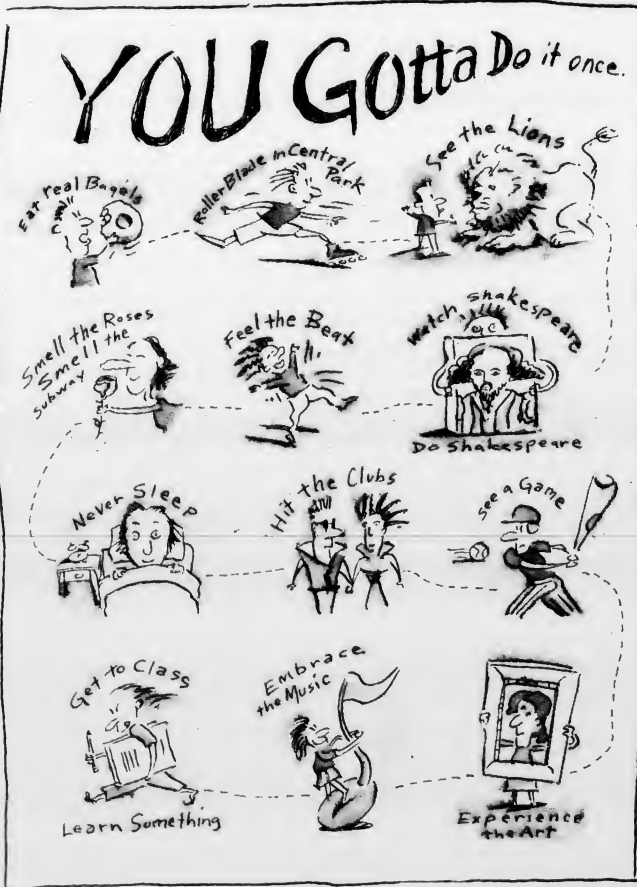 YOU Gotta Do it once.
Eat real Bagels
RollerBlade in Central
Park
See the Lions
Smell the Roses
Smell the
Subway
Feel the Beat
Watch Shakespeare
Do Shakespeare
Never Sleep
Hit the Clubs
See a Game
Get to Class
Learn Something
Embrace
the Music
Experience
the Art